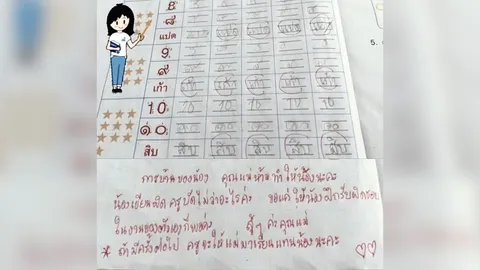 8
๘
แปด
9
๙
เก้า
10 10 10 10 10 10
๑๐ ๑๐ ๑๐ ๑๐ ๑๐ ๑๐
สิบ สิบ สิบ สิบ สิบ สิบ
5.
การบ้านของน้อง คุณแม่ห้ามทำให้น้องนะคะ
น้องเขียนผิด ครูปัดไม่ว่าอะไรค่ะ ขอแค่ให้น้องฝึกรับผิดชอบ
ในงานของตัวเองก็พอค่ะ สู้ๆ ค่ะคุณแม่
* ถ้ามีครั้งต่อไป ครูจะให้แม่มาเรียนแทนน้องนะคะ ♡♡